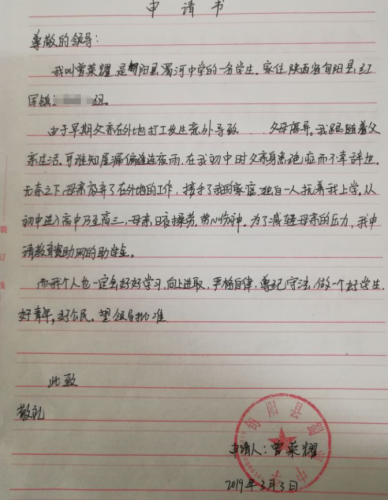 申请书
尊敬的领导:
我叫曾荣耀,是旬阳县蜀河中学的一名学生。家住陕西省旬阳县红
军镇
由于早期父亲在外地打工发生意外导致 父母离异。我跟随着父
亲生活。可谁知屋漏偏逢连夜雨,在我初中时父亲身患癌症而不幸辞世。
无奈之下母亲放弃了在外地的工作,接手了我的家庭,独自一人抚养我上学。从
初中进入高中乃至高三,母亲日夜操劳,劳心伤神。为了减轻母亲的压力,我申
请教育资助网的助学金。
而我个人也一定会好好学习,向上进取,严格自律,遵纪守法,做一个好学生,
好青年,好公民。望领导批准
此致
敬礼
申请人:曾荣耀
2019年3月3日